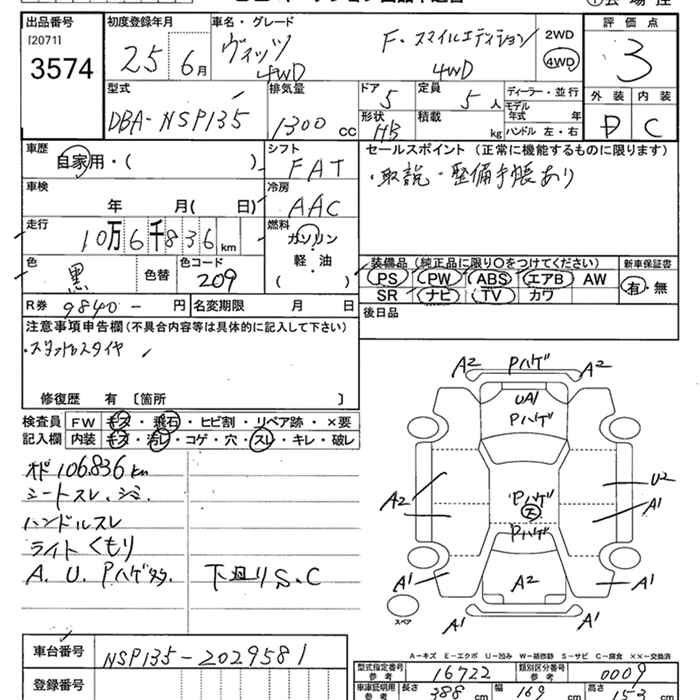 出品番号 初度登録年月 車名・グレード 評価点
[2071] 25 6月 ヴィッツ 4WD F・スマイルエディション 4WD 2WD 4WD 3
3574
型式 排気量 ドア 定員 ディーラー・並行 外装 内装
DBA-NSP135 1300 cc 5 5人 モデル年式 年 D C
形状 HB 積載 kg ハンドル 左・右
車歴 シフト セールスポイント (正常に機能するものに限ります)
自家用・( ) FAT ・取説・整備手帳あり
車検 冷房
年 月( 日) AAC
走行 燃料
10万6千836km ガソリン
軽・油
( )
装備品 (純正品に限り○をつけてください) 新車保証書
色 黒 色替 色コード 209 PS PW ABS エアB AW 有・無
SR ナビ TV カワ
R券 9840-円 名変期限 月 日 後日品
注意事項申告欄 (不具合内容等は具体的に記入して下さい)
・スタッドレスタイヤ
修復歴 有 〔箇所 〕
検査員 FW キズ・飛石・ヒビ割・リペア跡・×要
記入欄 内装 キズ・汚レ・コゲ・穴・スレ・キレ・破レ
オド106.836km
シートスレ、シミ.
ハンドルスレ
ライトくもり
A. U. Pハゲ多. 下廻りS.C
A2 Pハゲ A2
UA1
Pハゲ
A2 Pハゲ U2
A1
Pハゲ
A1 A2 A1
A1 A1
スペア
A-キズ E-エクボ U-凹み W-補修跡 S-サビ C-腐食 ××-交換済
車台番号 NSP135-2029581
登録番号
型式指定番号 参考 16722 類別区分番号 参考 0009
車庫証明用 参考 長さ 388 cm 幅 169 cm 高さ 153 cm